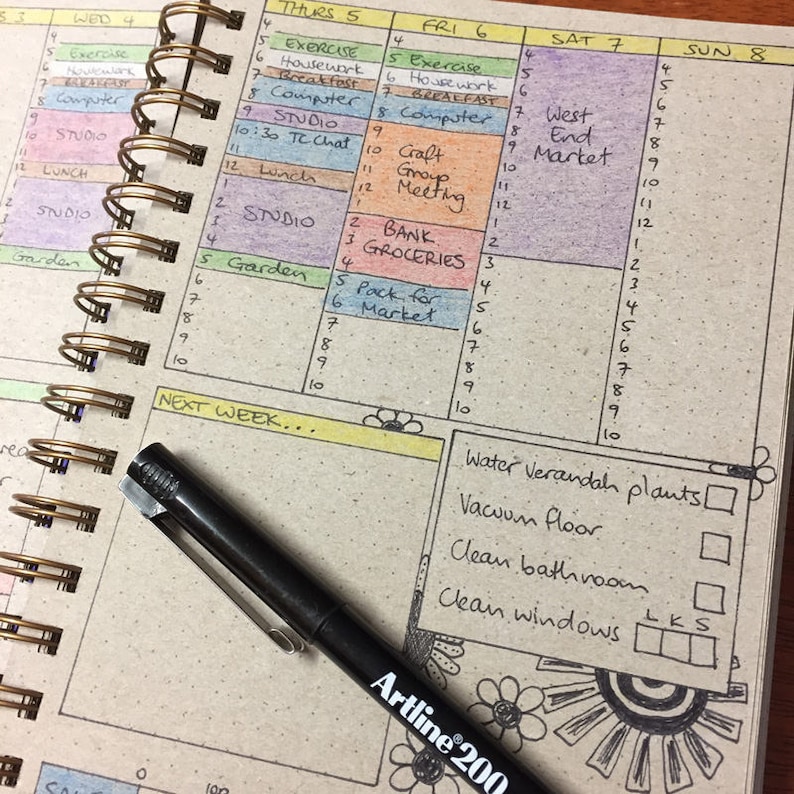 S 3
WED 4
THURS 5
FRI 6
SAT 7
SUN 8
Exercise
Housework
BREAKFAST
Computer
9
10
11
STUDIO
12
LUNCH
1
2
3
STUDIO
Garden
4
5 EXERCISE
6 Housework
7 Breakfast
8 Computer
9 STUDIO
10:30 TC Chat
11
12 Lunch
1
2
3
4
STUDIO
5 Garden
6
7
8
9
10
4
5 Exercise
6 Housework
7 BREAKFAST
8 Computer
9
10 Craft
11 Group
12 Meeting
1
2 BANK
3 GROCERIES
4
5 Pack for
6 Market
7
8
9
10
4
5
6
7
8
9
10
11
12
1
2
West
End
Market
3
4
5
6
7
8
9
10
4
5
6
7
8
9
10
11
12
1
2
3
4
5
6
7
8
9
10
NEXT WEEK...
Water verandah plants
Vacuum floor
Clean bathroom
Clean windows
L K S
Artline® 200
0
100